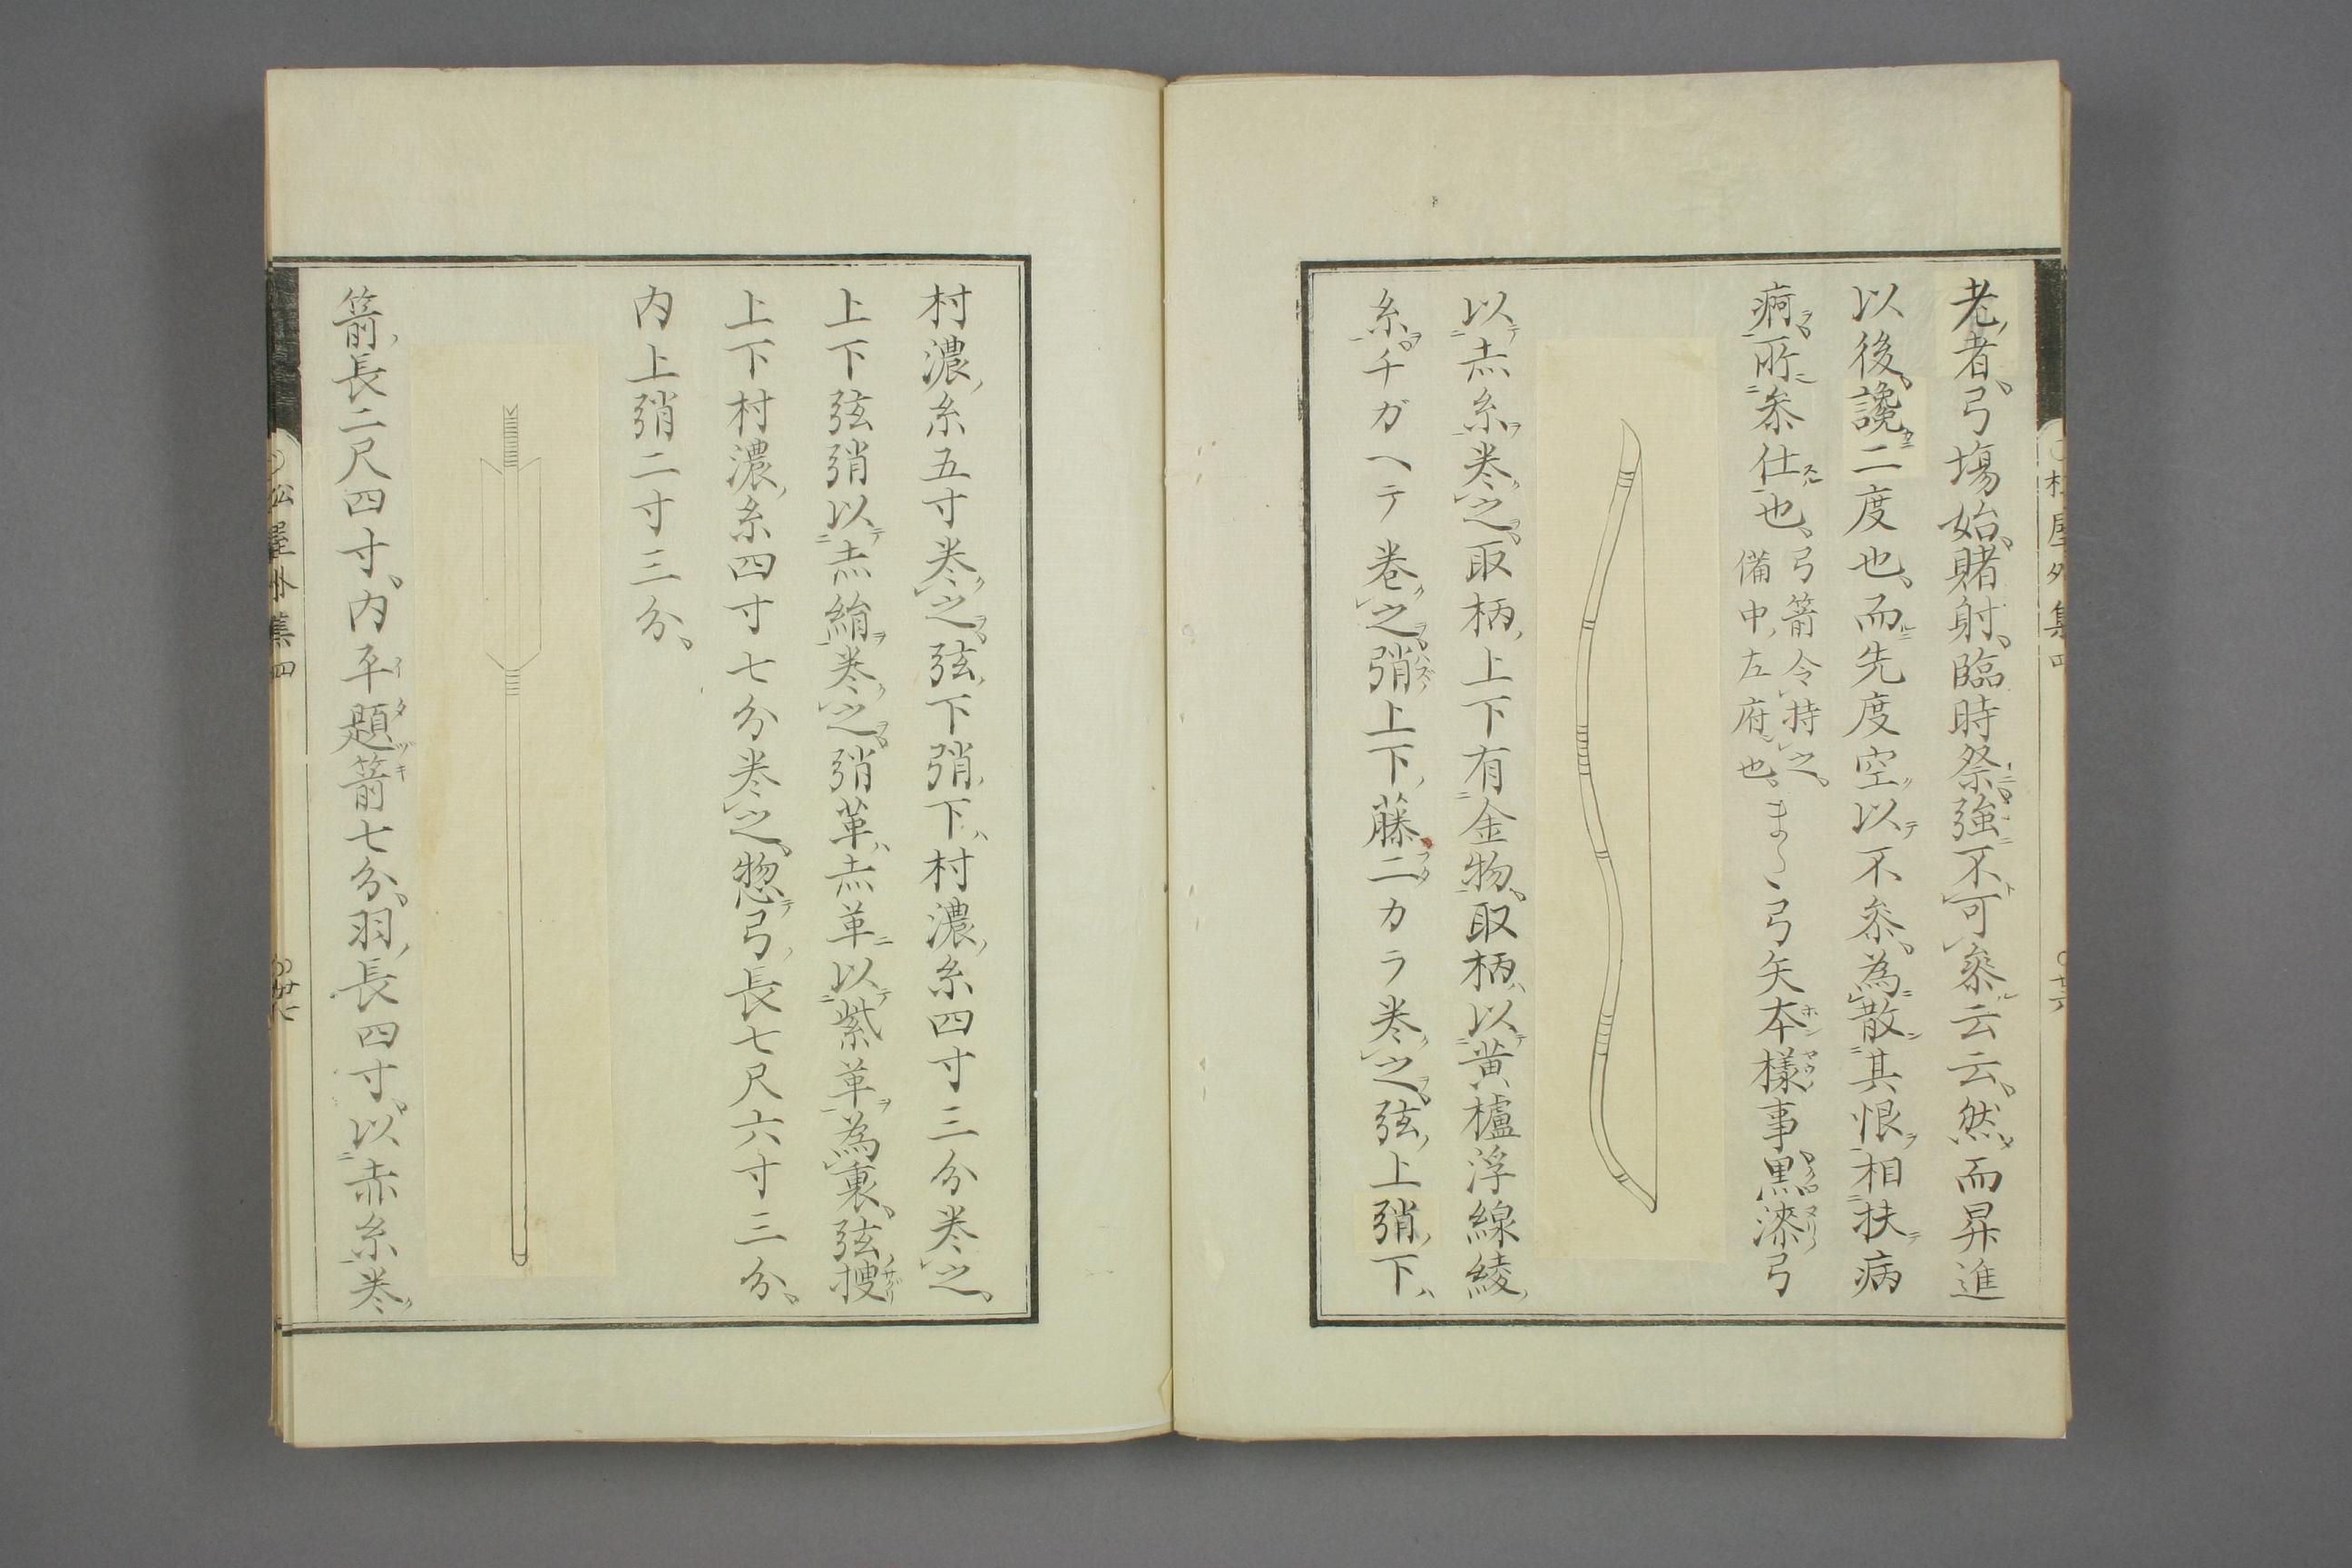 老者、弓塲始、賭射、臨時祭、強不可參云云、然而昇進
以後、讒二度也、而先度空以不参、為散其恨相扶病
痾所参仕也、弓箭令持之、
備中左府也、
まゝ、弓矢本様事黒漆弓
以赤糸巻之、取柄上下有金物、取柄以黄櫨浮線綾
糸チガヘテ巻之、弰上下藤二カラ巻之、弦上弰下
村濃糸五寸巻之、弦下弰下村濃糸四寸三分巻之、
上下弦弰以赤絹巻之、弰革赤革以紫革為裏、弦捜
上下村濃糸四寸七分巻之、惣弓長七尺六寸三分、
内上弰二寸三分、
箭長二尺四寸、内平題箭七分、羽長四寸、以赤糸巻
松屋外集四